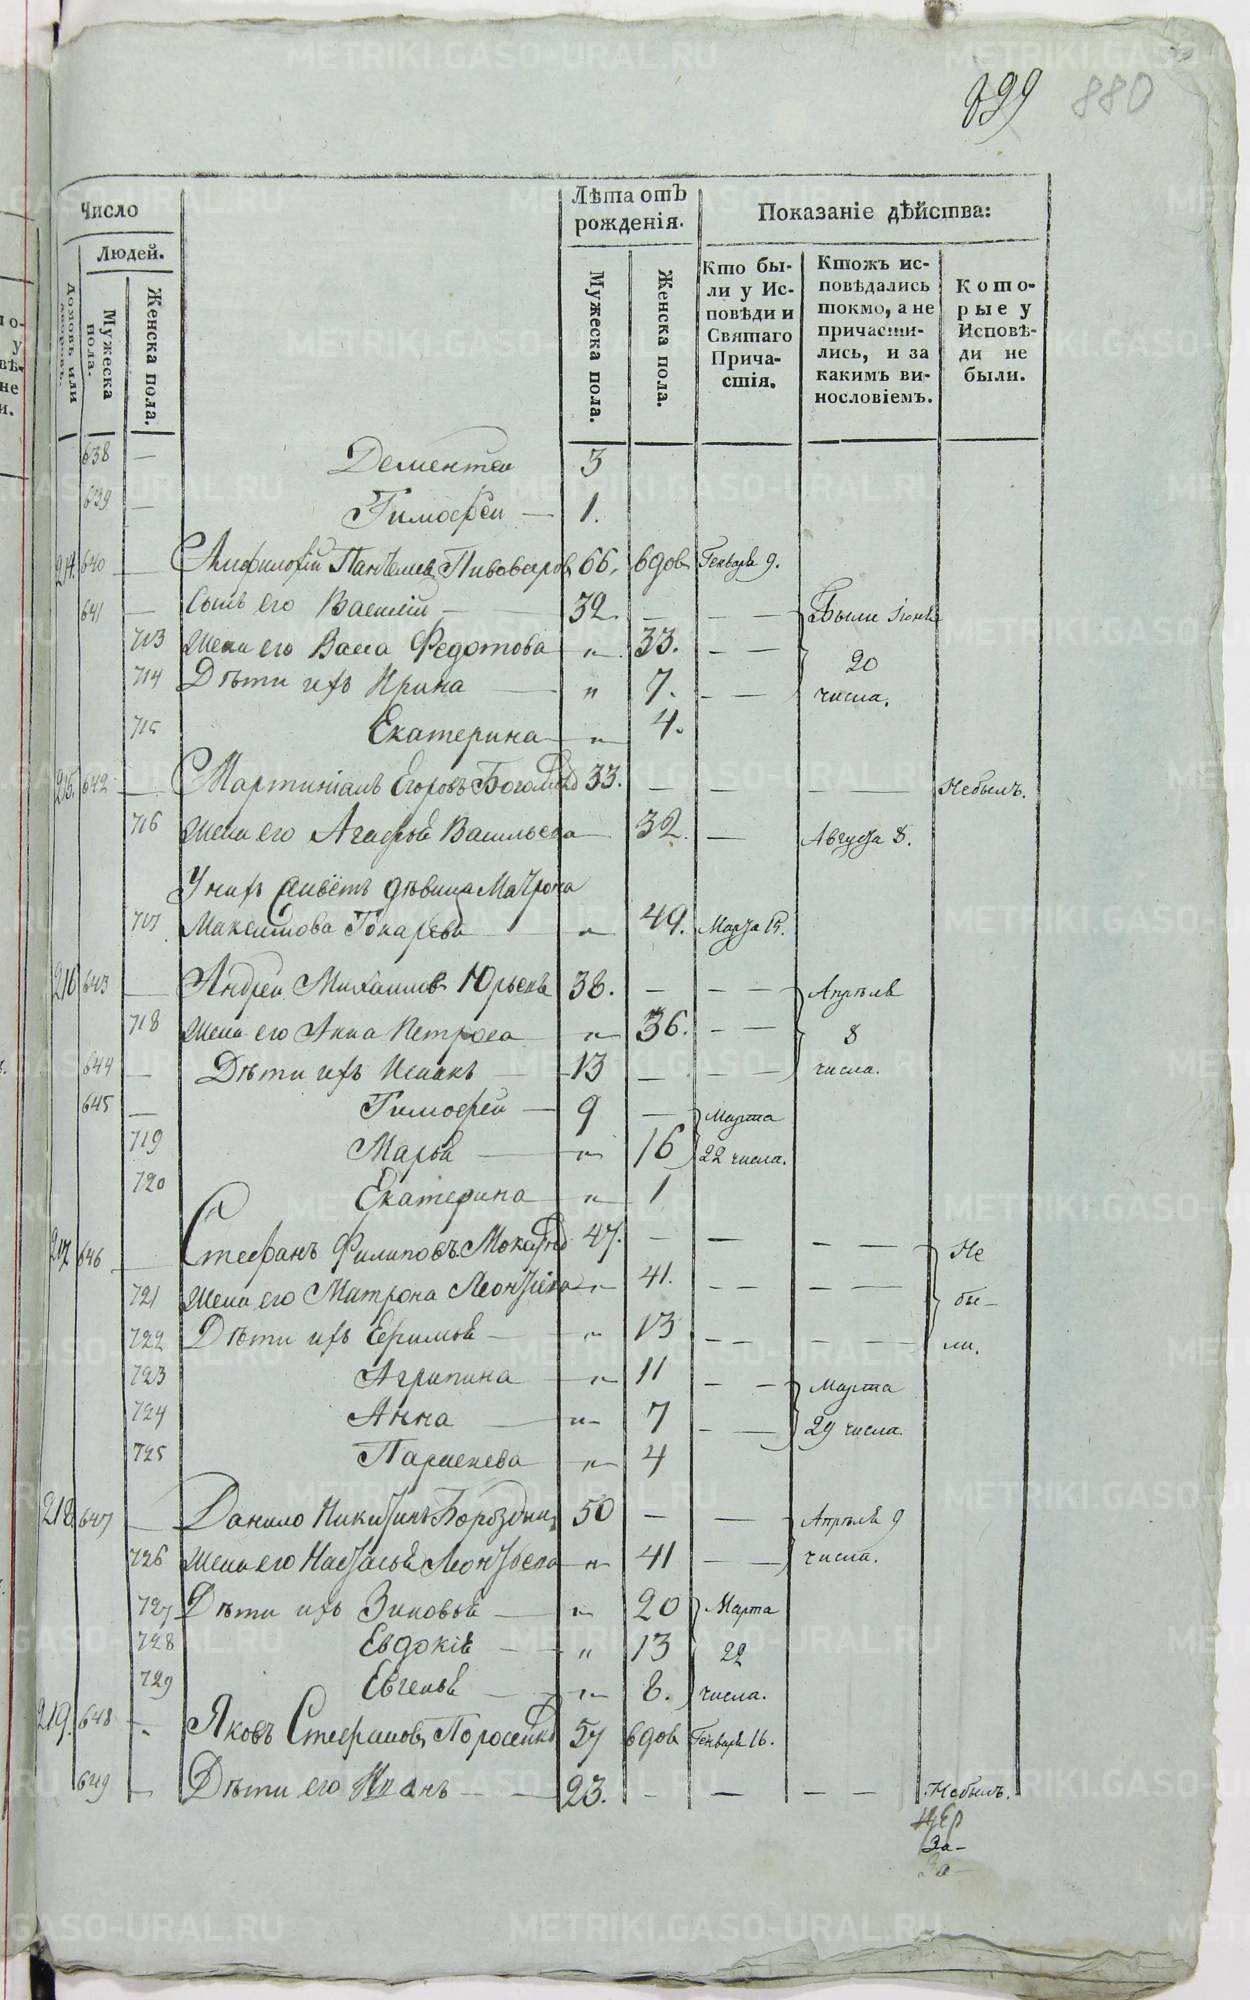 899 880
Число
Людей.
Домовъ или дворовъ.
Мужеска пола.
Женска пола.
Лѣта отъ рожденія.
Мужеска пола.
Женска пола.
Показаніе дѣйства:
Кто бы-
ли у Ис-
повѣди и
Святаго
Прича-
стія.
Ктожъ ис-
повѣдались
токмо, а не
причасти-
лись, и за
какимъ ви-
нословіемъ.
Кото-
рые у
Исповѣ-
ди не
были.
638 — Дементеи 3
639 — Тимофеи — 1.
214. 640 — Амфилофій Пивоваровъ 66. вдов Генваря 9.
641 — Сынъ его Василій — 32. — — — Были Іюня
713 Жена его Васса Федотова — „ 33. — — 20
714 Дѣти ихъ Ирина — „ 7. — — числа.
715 Екатерина — „ 4.
215. 642 — Мартиніанъ Егоровъ 33. — — — — Небылъ.
716 Жена его Агафья Васильева — 32. — Августа 8.
У нихъ живетъ дѣвица Матрона
717 Максимова Токарева — „ 49. Марта 15.
216 643 — Андреи Михаиловъ Юрьевъ 38. — — — Апрѣля
718 Жена его Анна Петрова — „ 36. — — 8
644 — Дѣти ихъ Исаакъ — 13 — — — числа.
645 — Тимофеи — 9 — Марта
719 Марья — „ 16 22 числа.
720 Екатерина — „ 1
217. 646 — Стефанъ Филиповъ 47. — — — — Не
721 Жена его Матрона Леонтіева „ 41. — — — — бы-
722 Дѣти ихъ Ефимья — „ 13 — — — — ли.
723 Агрипина — „ 11 — — Марта
724 Анна — „ 7 — — 29 числа.
725 Параскева — „ 4
218. 647 — Данило Никитинъ 50 — — Апрѣля 9
726 Жена его Настасья Леонтьева — „ 41 — — числа.
727 Дѣти ихъ Зиновья — „ 20 Марта
728 Евдокія — „ 13 22
729 Евгенья — „ 8. числа.
219. 648 — Яковъ Стефановъ 57 вдов Генваря 16.
649 — Дѣти его Иванъ — — 23. — — — — Небылъ.
За-
За-
METRIKI.GASO-URAL.RU